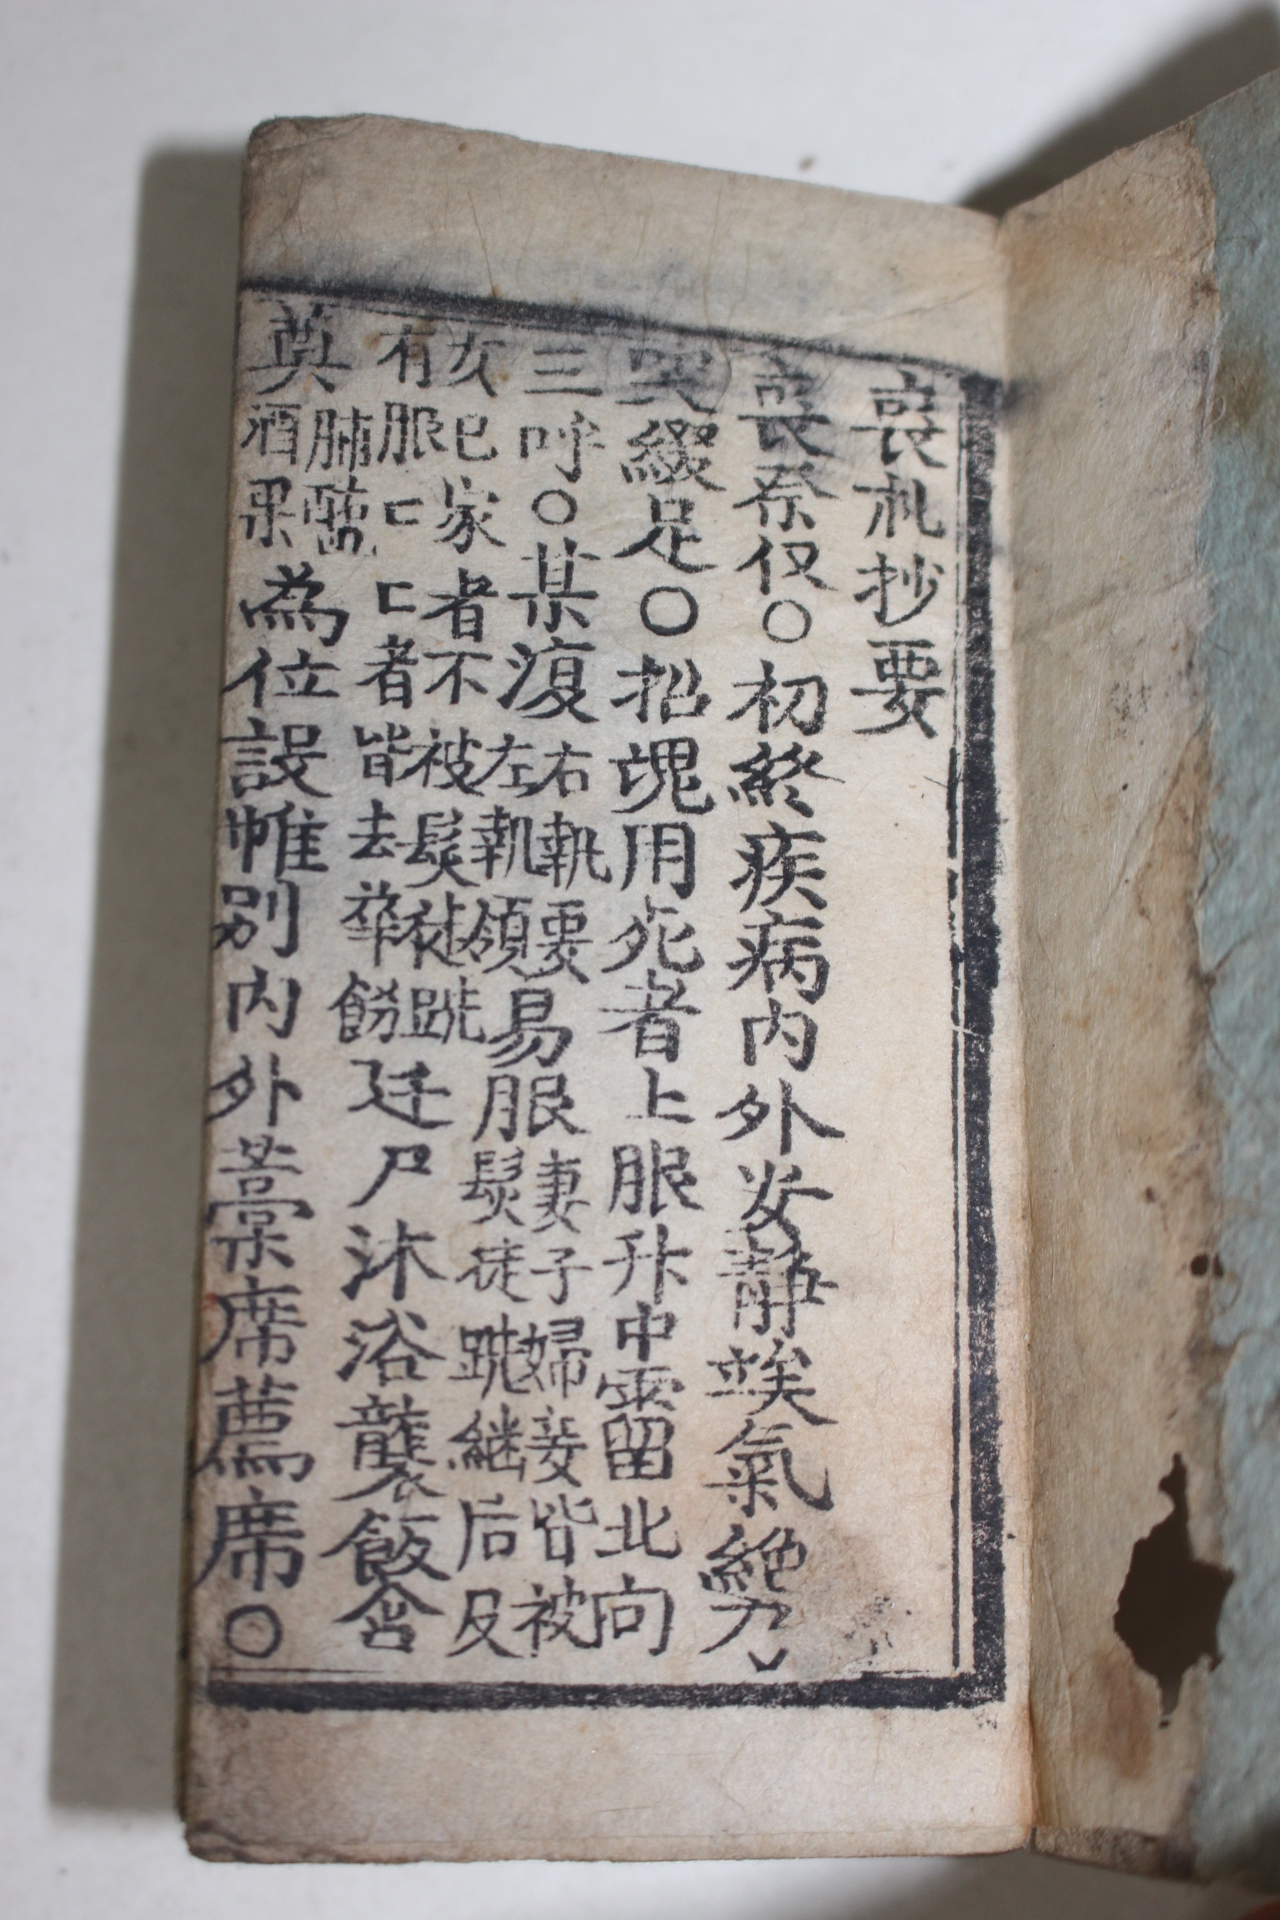 喪礼抄要
喪祭仪○初終疾病内外安静竢氣絶乃
哭綴足○招魂用死者上服升中霤北向
三呼○某復右執要左執領易服妻子婦妾皆被髮徒跣継后及
女已家者不被髮徒跣有服匸匸者皆去華餙迁尸沐浴襲飯含
奠脯醢酒果為位設帷别内外藁席薦席○